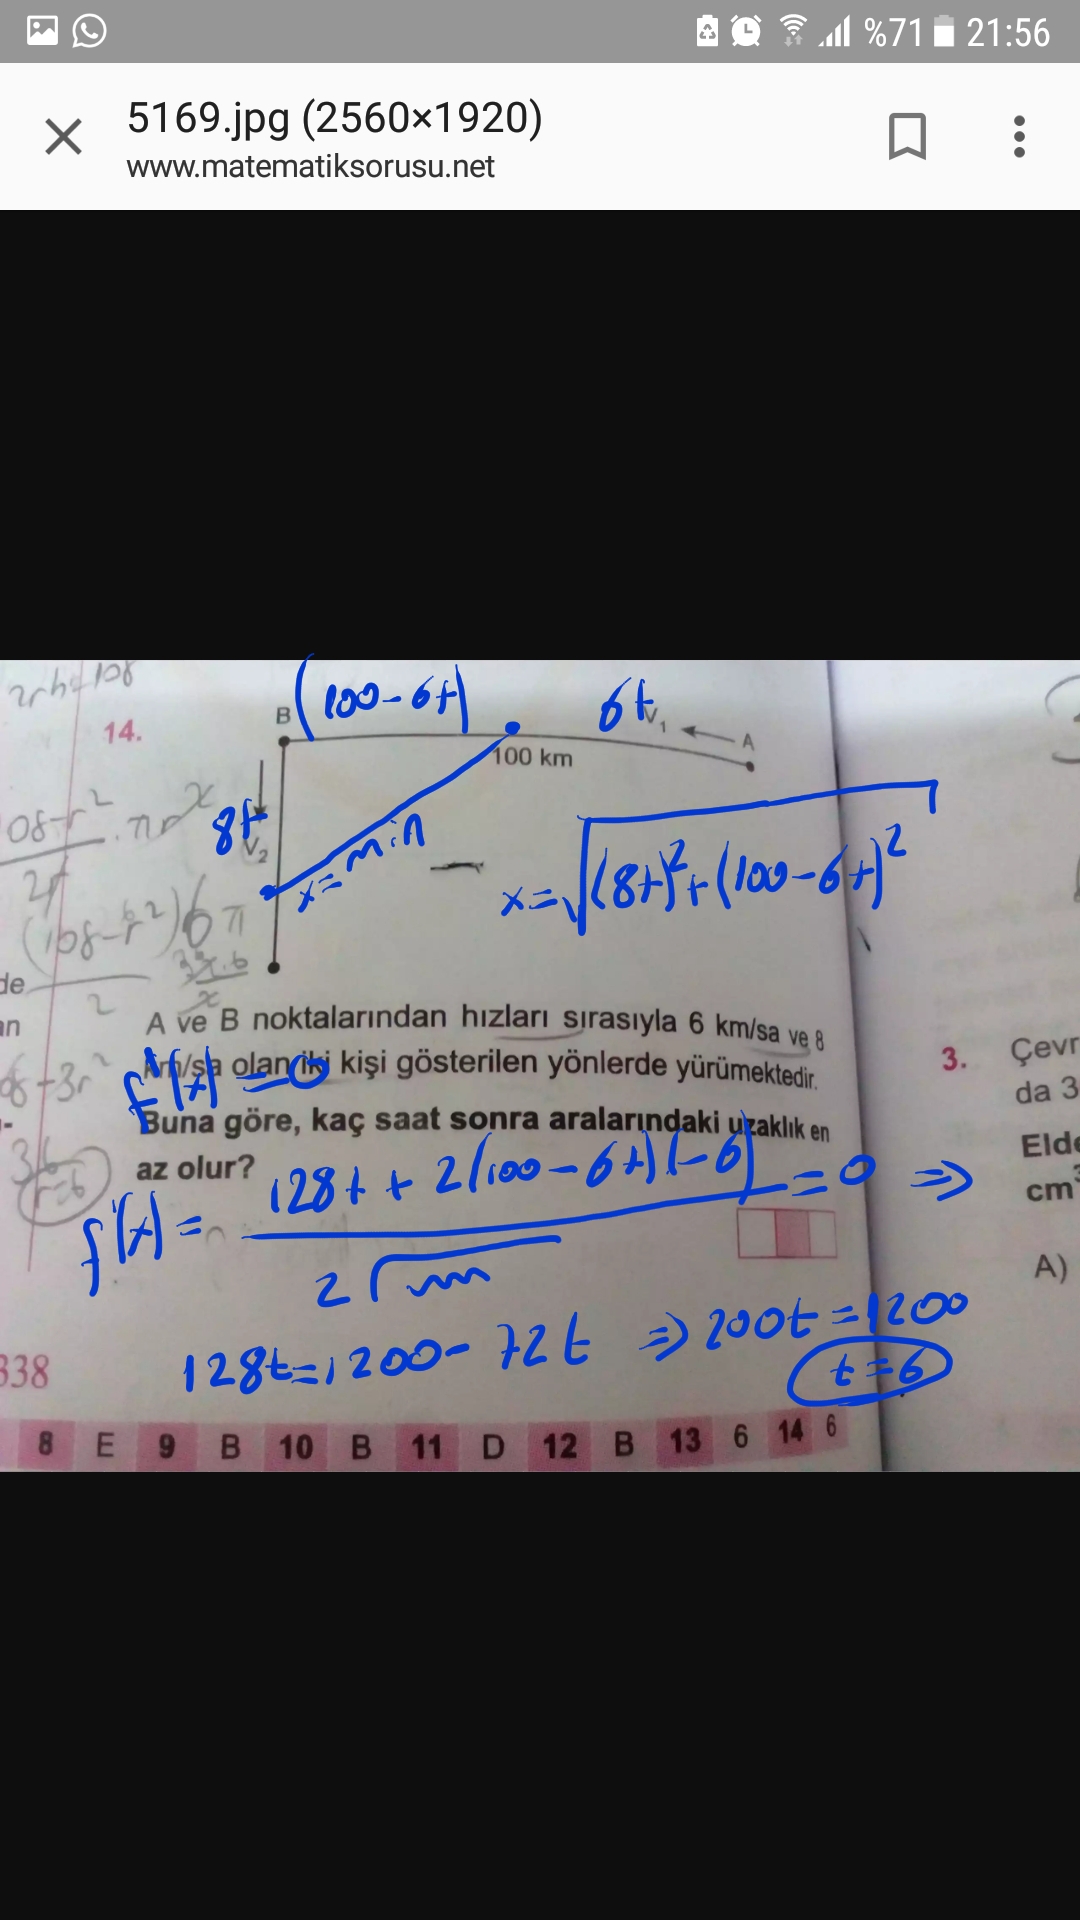 %71 21:56
5169.jpg (2560×1920)
www.matematiksorusu.net
2rh=108
14.
B
(100-6t)
6t
V₁
A
100 km
8t
V₂
x=min
x=√(8t)²+(100-6t)²
de
an
A ve B noktalarından hızları sırasıyla 6 km/sa ve 8
km/sa olan iki kişi gösterilen yönlerde yürümektedir.
f'(x)=0
Buna göre, kaç saat sonra aralarındaki uzaklık en
az olur?
f'(x)= 128t+2(100-6t)(-6) =0 ⇒
2√
128t=1200-72t ⇒ 200t=1200
t=6
338
8 E 9 B 10 B 11 D 12 B 13 6 14 6
3. Çevr
da 3
Elde
cm³
A)